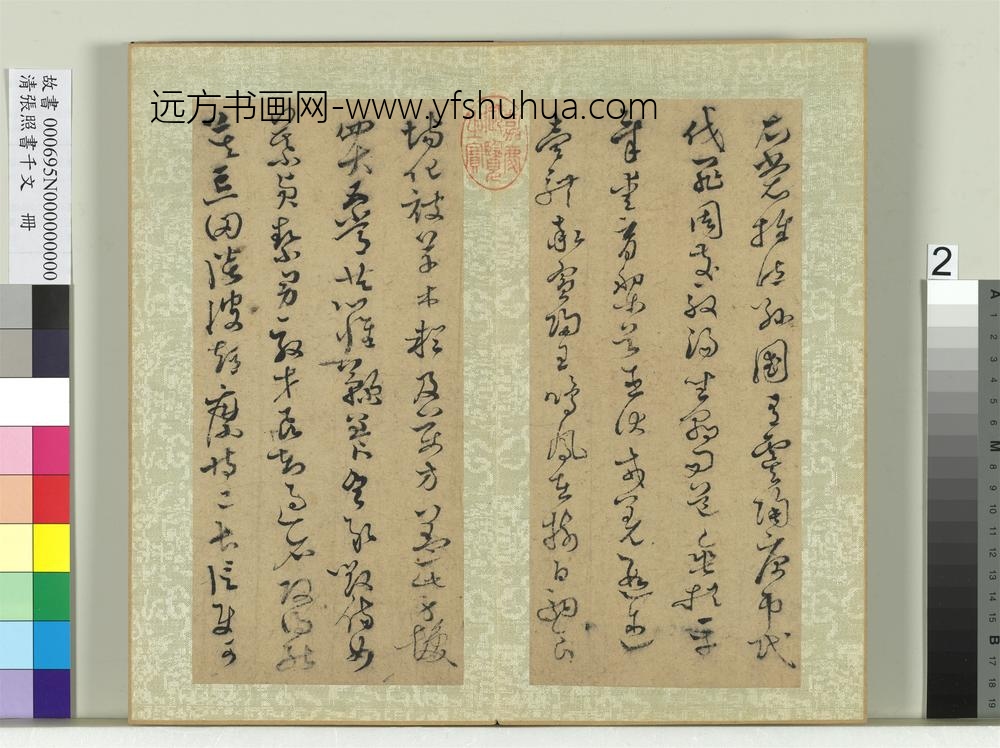 远方书画网-www.yfshuhua.com
衣裳推位讓國有虞陶唐弔民
伐罪周發殷湯坐朝問道垂拱平
章愛育黎首臣伏戎羌遐邇
壹體率賓歸王鳴鳳在樹白駒食
場化被草木賴及萬方蓋此身髮
四大五常恭惟鞠養豈敢毀傷女
慕貞絜男效才良知過必改得能
莫忘罔談彼短靡恃己長信使可
嘉慶御覽之寶
故書 000695N000000000
清張照書千文 冊
2